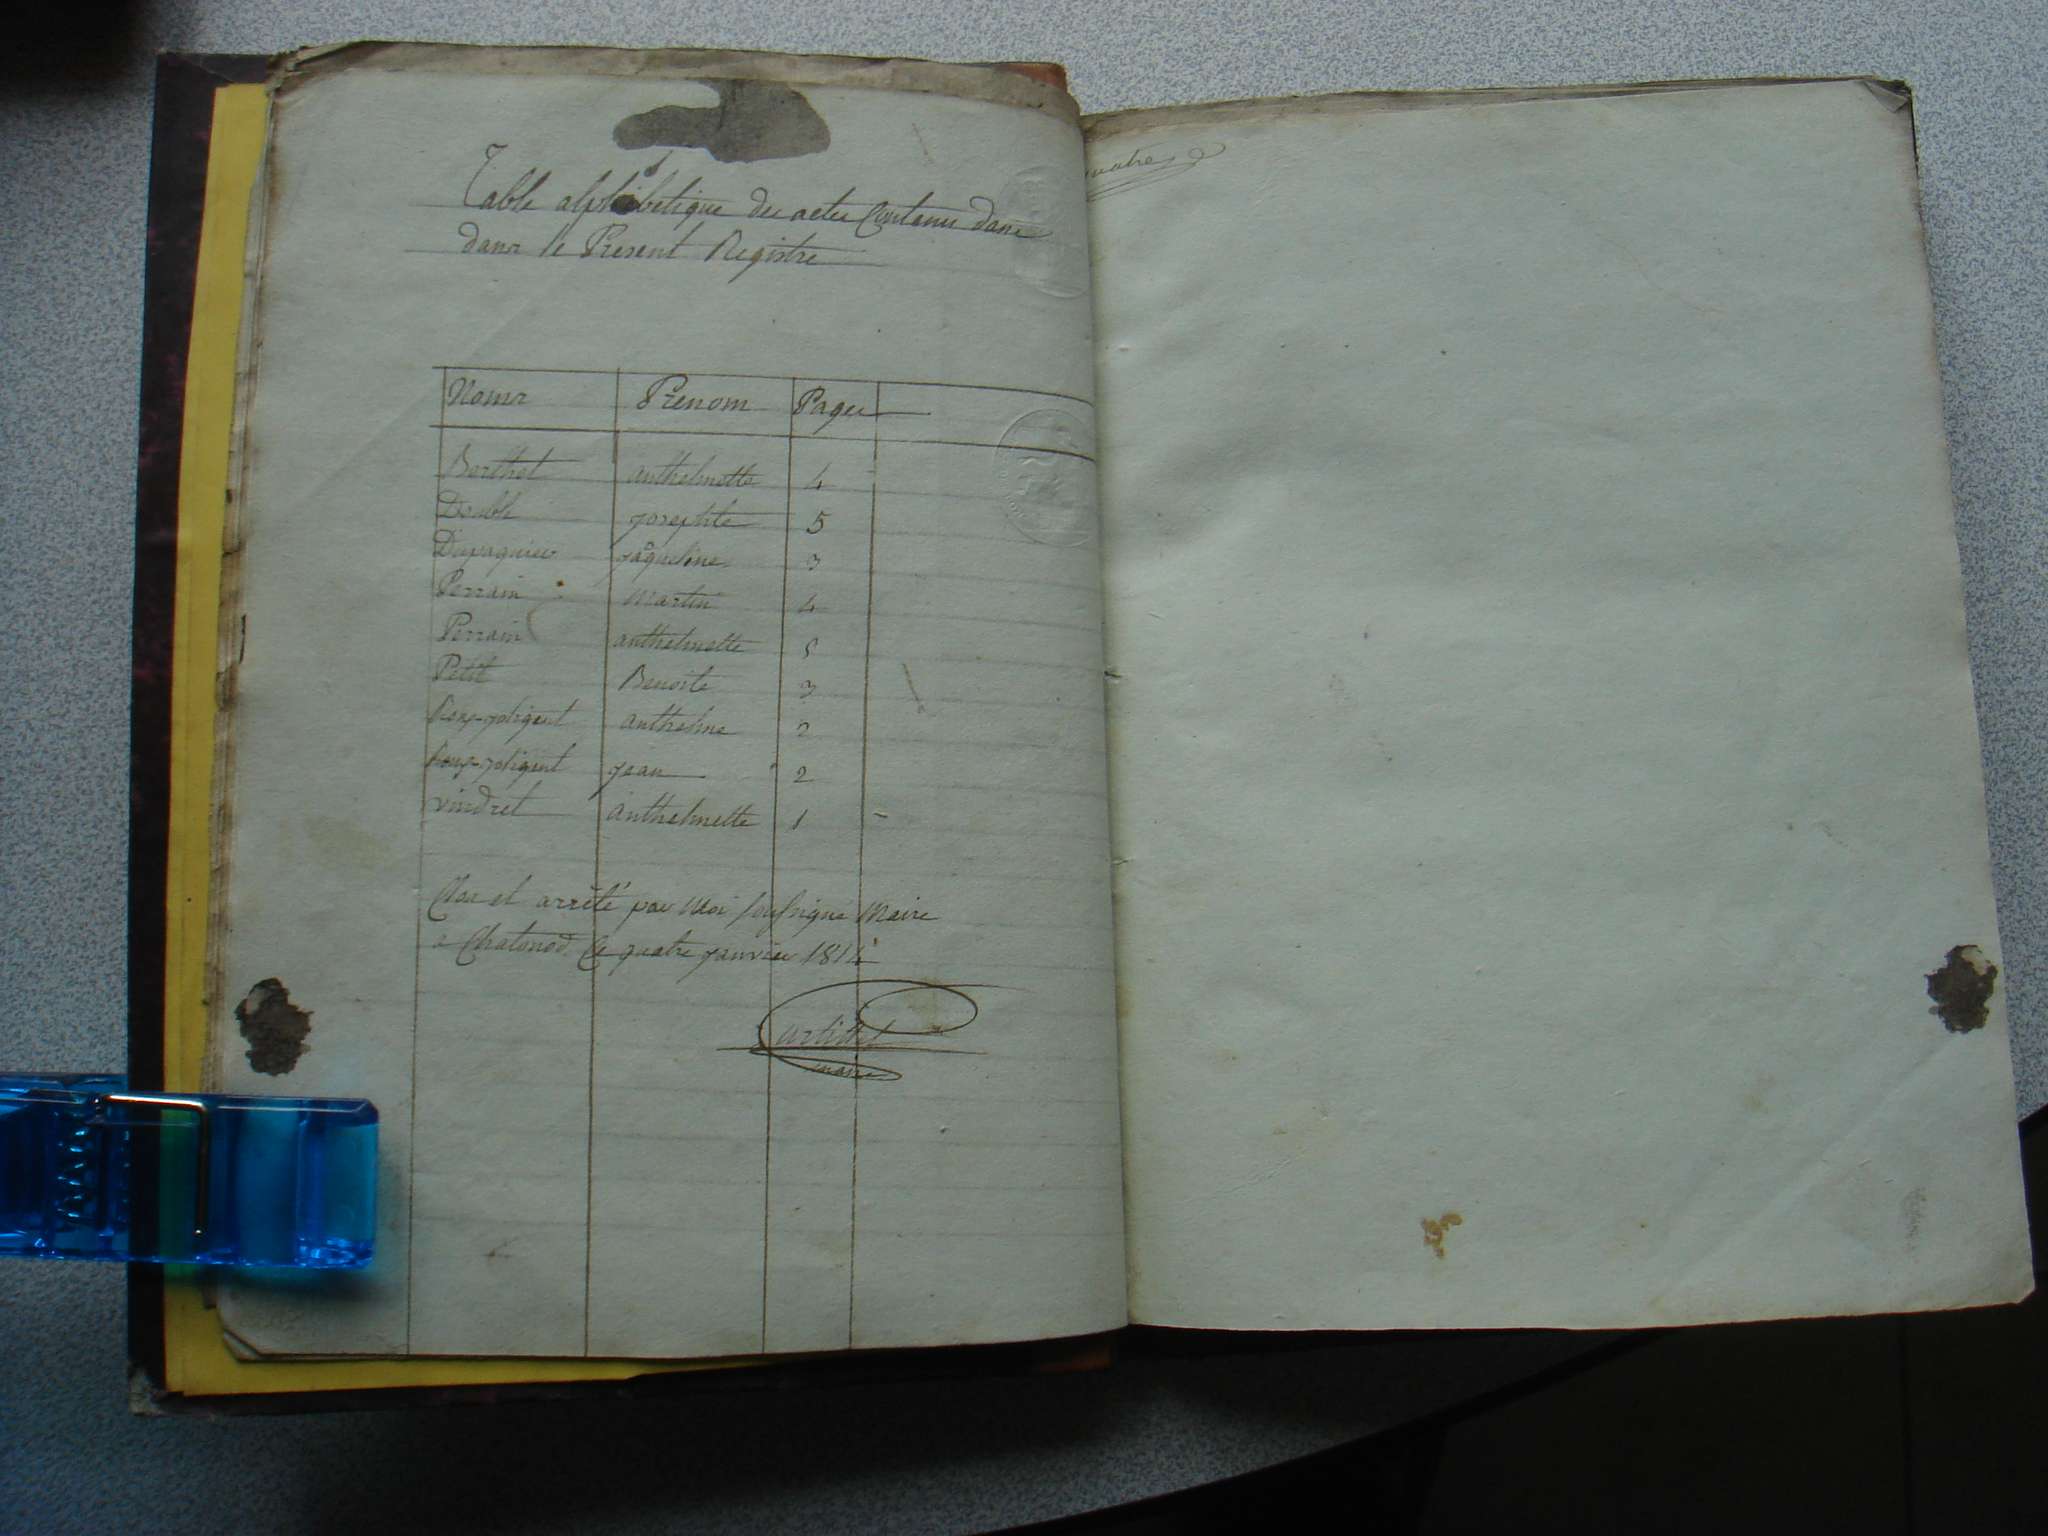 Table alphabetique des actes Contenus dans
dans le Present Registre
Noms Prenom Pages
Berthet anthelmette 4
Double josephte 5
Dupaquier jaqueline 3
Perrain martin 4
Perrain anthelmette 5
Petit Benoite 3
anthelme 2
jean 2
vindret anthelmette 1
Clos et arrêté par Moi soussigné Maire
a Chatonod Ce quatre janvier 1814
maire
quatre